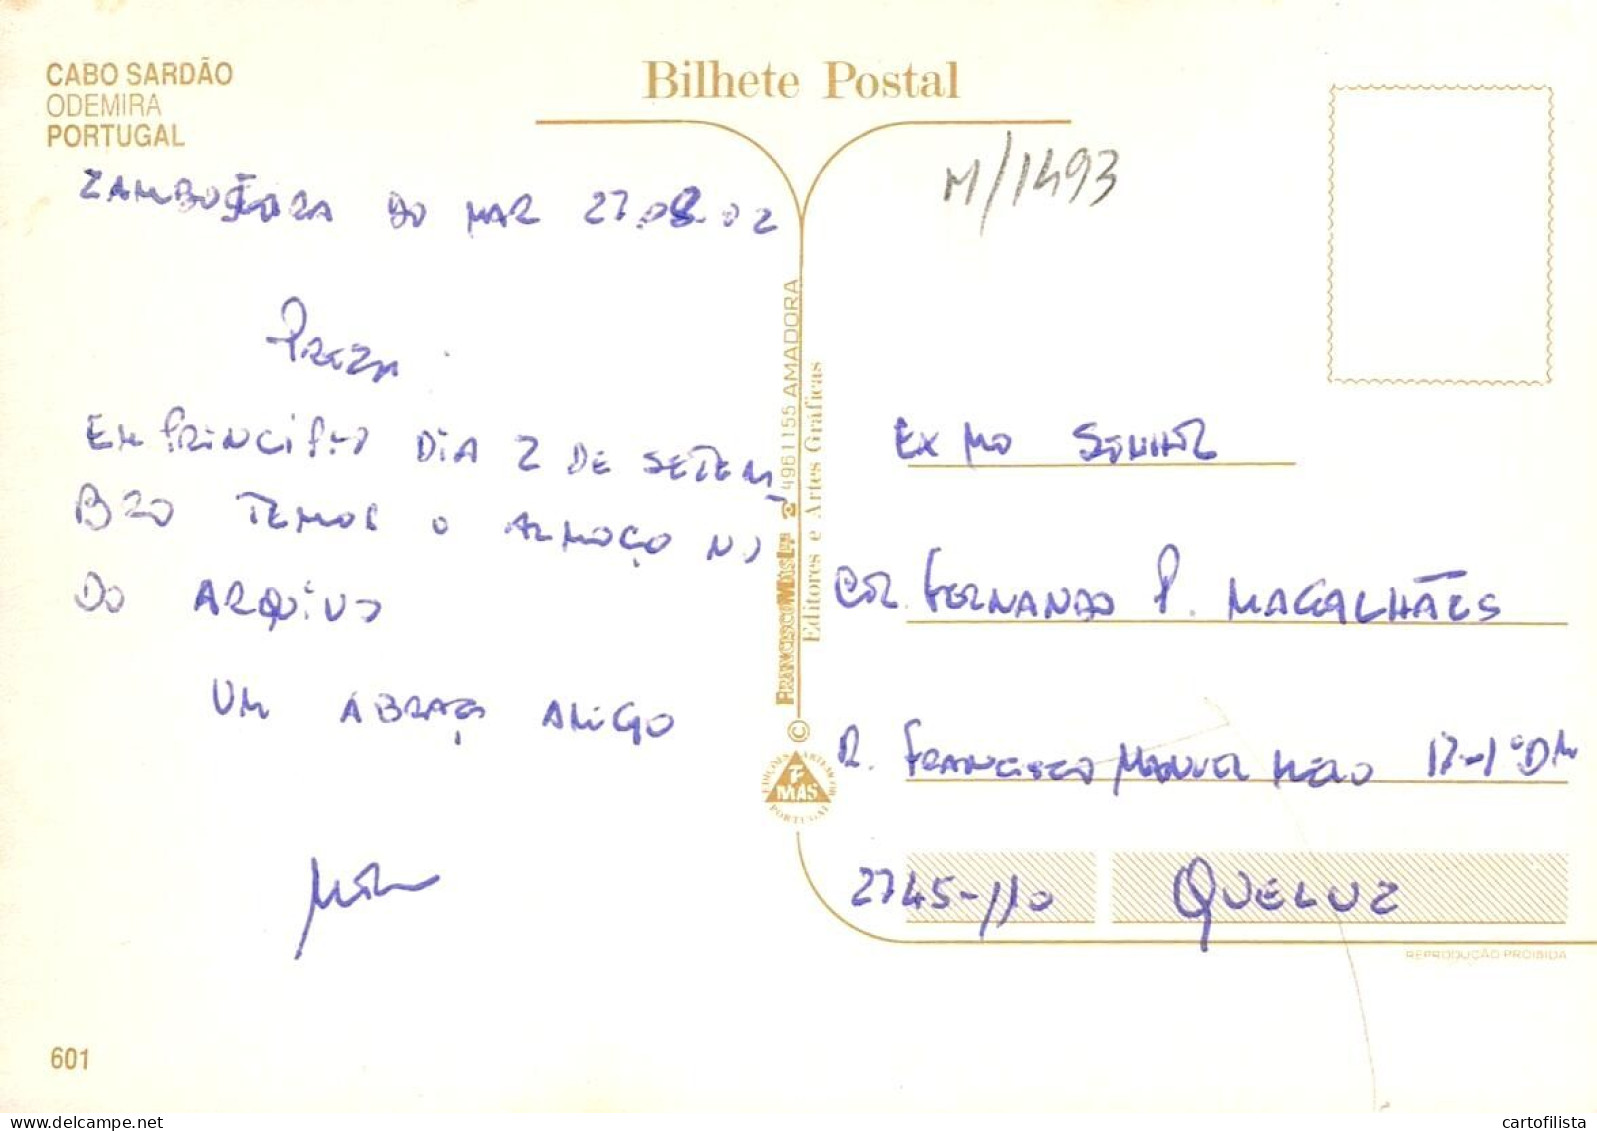 CABO SARDÃO
ODEMIRA
PORTUGAL
Bilhete Postal
M/1493
DO MAR 27.08.02
EM PRINCIPIO DIA 2 DE SETEM
BRO TEMOS O ALMOÇO NO
DO ARQUIVO
UM ABRAÇO AMIGO
FRANCISCO MÁS Lda ☎ 4961155 AMADORA
Editores e Artes Gráficas
©
EDIÇÕES ARTEMAS DE
MAS
PORTUGAL
EX MO SENHOR
COR. FERNANDO P. MAGALHÃES
R. FRANCISCO MANUEL MELO 17-1º
2745-110 QUELUZ
REPRODUÇÃO PROIBIDA
601
www.delcampe.net
cartofilista